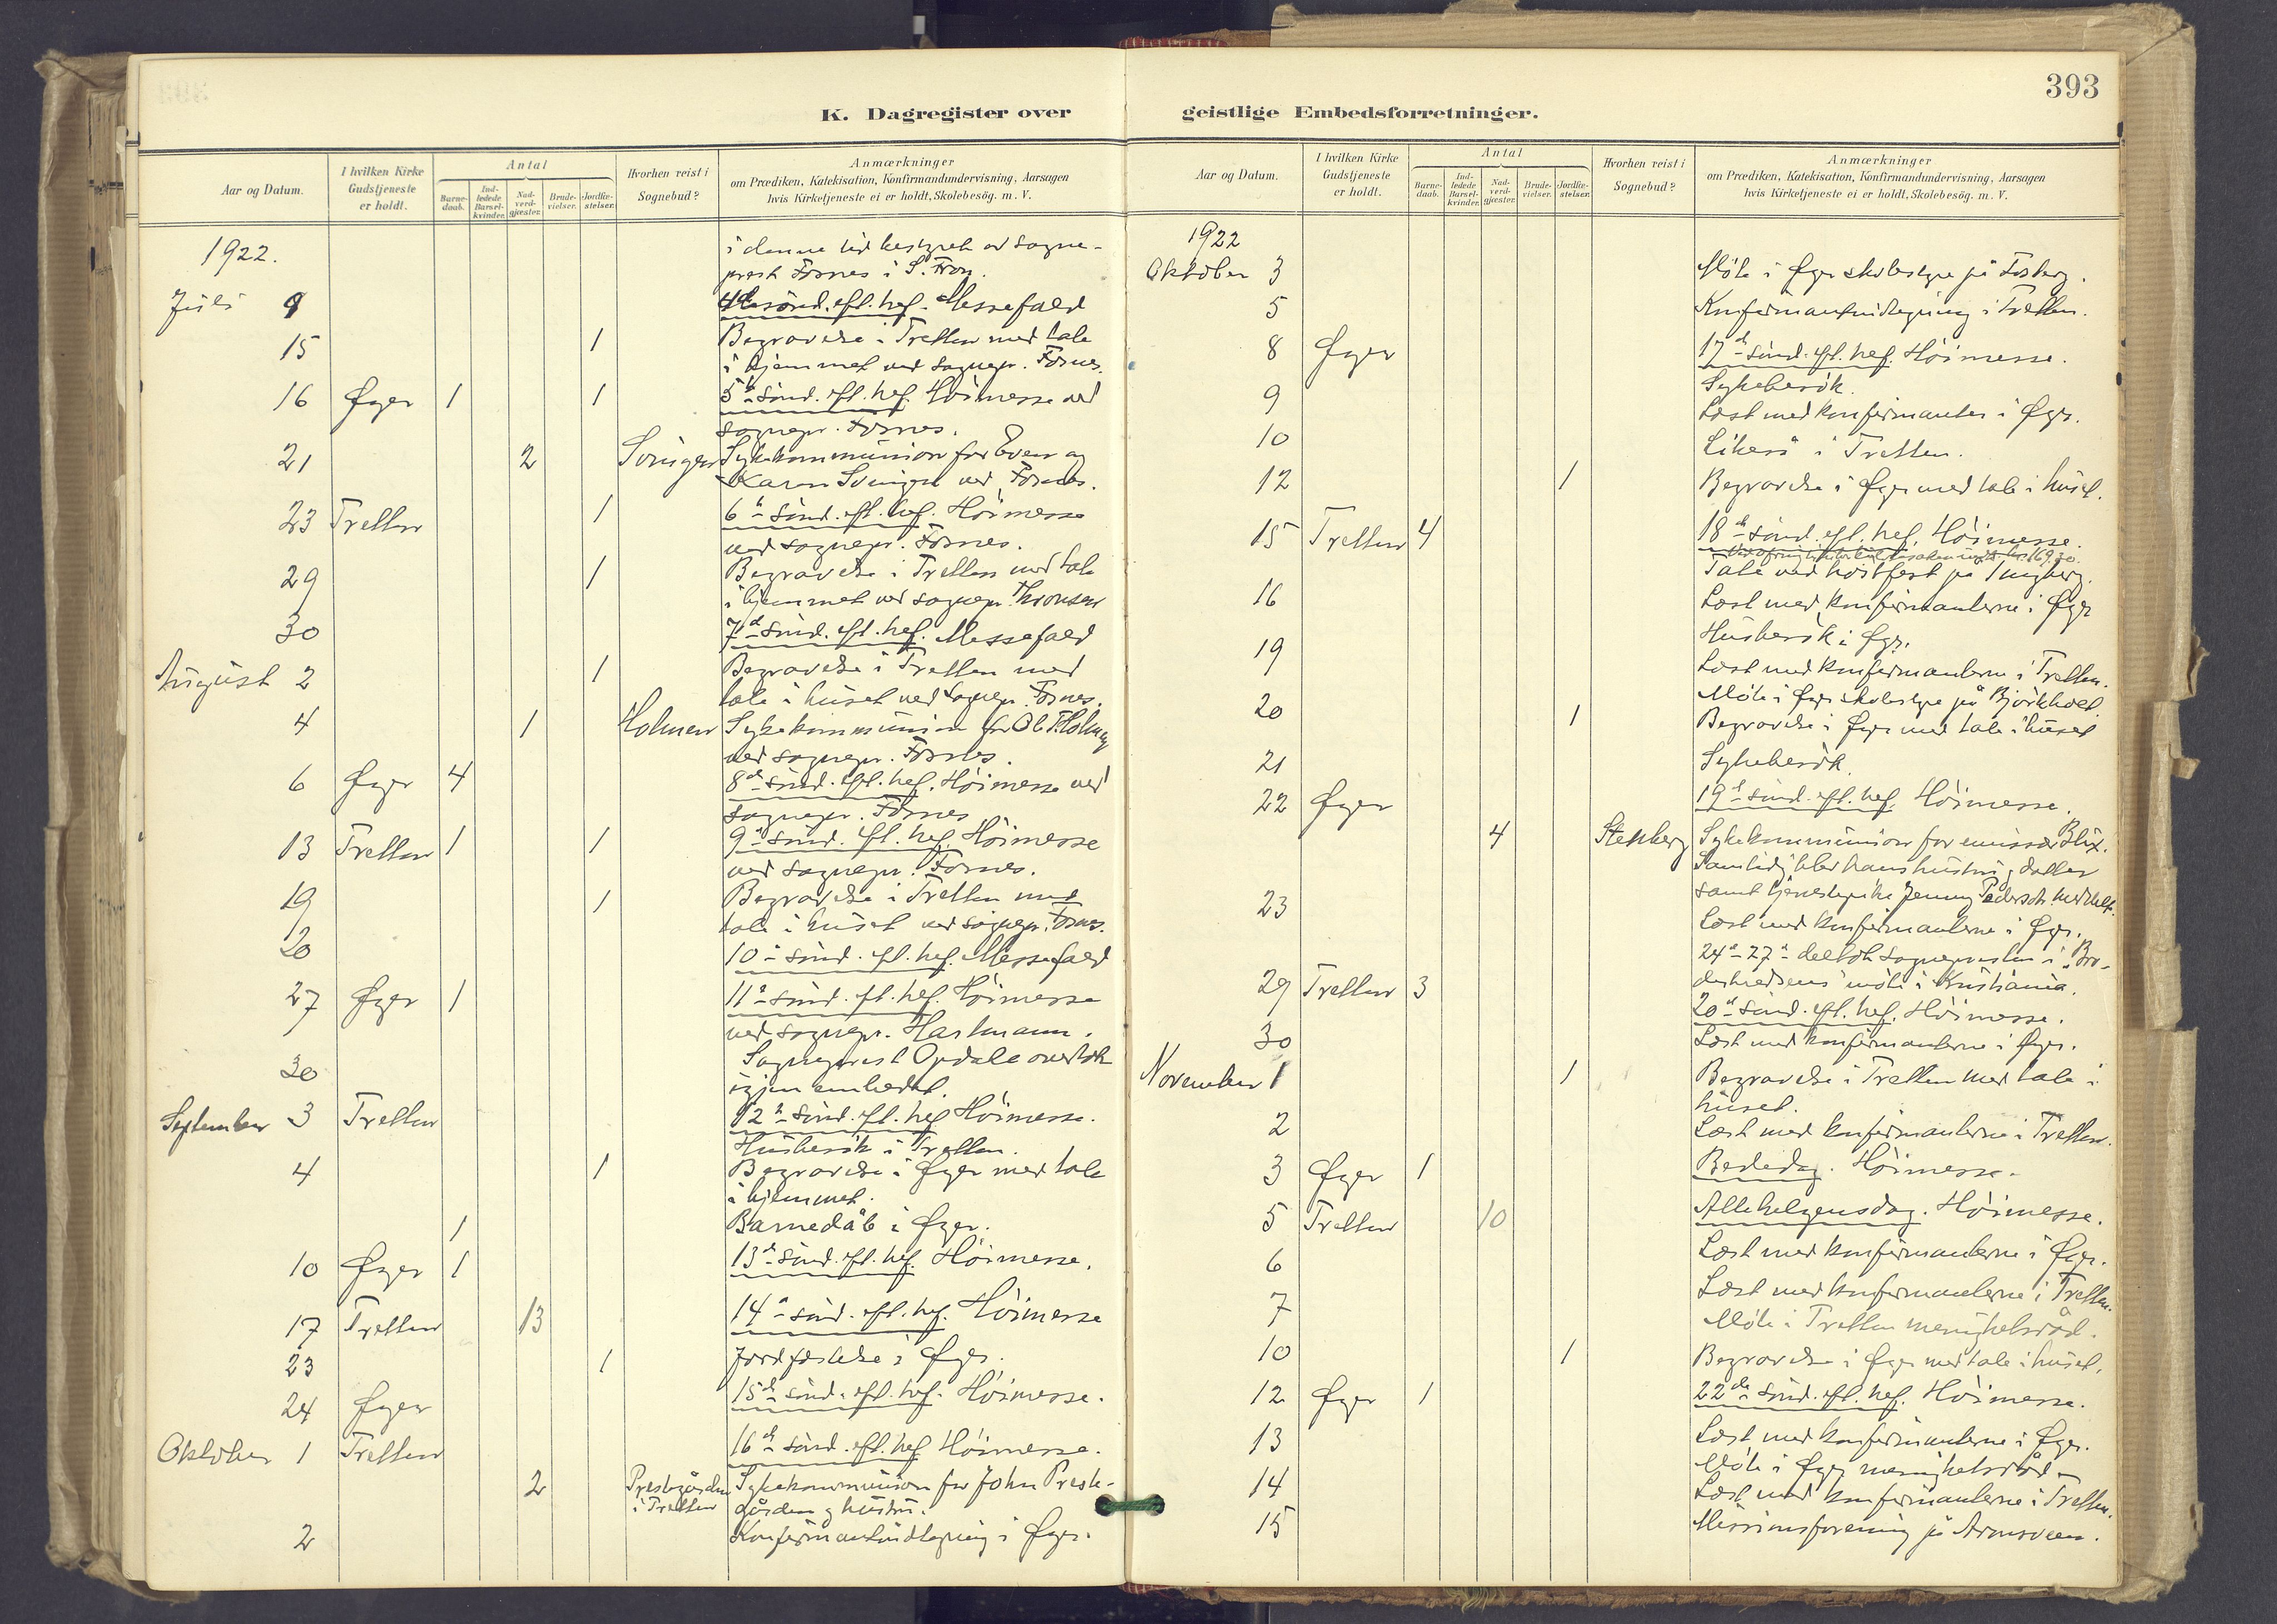 393
K. Dagregister over geistlige Embedsforretninger.
Aar og Datum.
I hvilken Kirke Gudstjeneste er holdt.
Antal
Barnedaab.
Indledede Barselkvinder.
Nadverdgjæster.
Brudevielser.
Jordfæstelser.
Hvorhen reist i Sognebud?
Anmærkninger
om Prædiken, Katekisation, Konfirmandundervisning, Aarsagen
hvis Kirketjeneste ei er holdt, Skolebesög. m. V.
1922.
i denne tid bestyret av sogne-
prest Fosnes i S. Fron.
Juli 9 4de sönd. eft. hel. Messefald
15 1 Begravelse i Tretten med tale
i hjemmet ved sognepr. Fosnes.
16 Øyer 1 1 5te sönd. eft. hel. Höimesse ved
sognepr. Fosnes.
21 2 Svingen Sykekommunion for Even og
Karen Svingen ved Fosnes.
23 Tretten 1 6te sönd. eft. hel. Höimesse
ved sognepr. Fosnes.
29 1 Begravelse i Tretten med tale
i hjemmet ved sognepr. Thronsen
30 7de sönd. eft. hel. Messefald
August 2 1 Begravelse i Tretten med
tale i huset ved sognepr. Fosnes.
4 1 Holmen Sykekommunion for Ole T. Holmen
ved sognepr. Fosnes.
6 Øyer 4 8de sönd. eft. hel. Höimesse ved
sognepr. Fosnes
13 Tretten 1 1 9de sönd. eft. hel. Höimesse
ved sognepr. Fosnes.
19 1 Begravelse i Tretten med
tale i huset ved sognepr. Fosnes.
20 10de sönd. eft. hel. Messefald
27 Øyer 1 11te sönd. eft. hel. Höimesse
ved sognepr. Hartmann.
30 Sogneprest Opdale overtok
igjen embedet.
September 3 Tretten 12te sönd. eft. hel Höimesse.
Husbesök i Tretten.
4 1 Begravelse i Øyer med tale
i hjemmet.
1 Barnedåb i Øyer.
10 Øyer 1 13de sönd. eft. hel. Höimesse.
17 Tretten 13 14de sönd. eft. hel. Höimesse
23 1 Jordfæstelse i Øyer.
24 Øyer 15de sönd. eft. hel. Höimesse.
Oktober 1 Tretten 16de sönd. eft. hel Höimesse.
2 Prestegården i Tretten Sykekommunion for John Preste-
gården og hustru.
2 Konfirmantindtegning i Øyer.
Aar og Datum.
I hvilken Kirke Gudstjeneste er holdt.
Antal
Barnedaab.
Indledede Barselkvinder.
Nadverdgjæster.
Brudevielser.
Jordfæstelser.
Hvorhen reist i Sognebud?
Anmærkninger
om Prædiken, Katekisation, Konfirmandundervisning, Aarsagen
hvis Kirketjeneste ei er holdt, Skolebesög. m. V.
1922
Oktober 3 Möte i Øyer skolestyre på Fosberg.
5 Konfirmantindtegning i Tretten.
8 Øyer 17de sönd. eft. hel. Höimesse.
Sykebesök.
9 Læst med konfirmanter i Øyer.
10 Likens i Tretten.
12 1 Begravelse i Øyer med tale i huset.
15 Tretten 4 18de sönd. eft. hel. Höimesse.
Tale ved höstfest på Tingberg.
16 Læst med konfirmanterne i Øyer
Husbesök i Øyer.
19 Læst med konfirmanterne i Tretten.
Möte i Øyer skolestyre på Björkhoel
20 1 Begravelse i Øyer med tale i huset
21 Sykebesök.
22 Øyer 19de sönd. eft. hel. Höimesse.
4 Stenberg Sykekommunion for emissær Blix.
Samtidig blev hans hustru, datter
samt tjenestepike Jenny Pedersdt. meddelt.
23 Læst med konfirmanterne i Øyer.
24de-27de deltok sognepresten i "Bro-
derkredsens" möte i Kristiania.
29 Tretten 3 20de sönd. eft. hel. Höimesse.
30 Læst med konfirmanterne i Øyer.
November 1 1 Begravelse i Tretten med tale i
huset.
2 Læst med konfirmanterne i Tretten.
3 Øyer 1 Bededag. Höimesse.
5 Tretten 10 Allehelgensdag. Höimesse.
6 Læst med konfirmanterne i Øyer.
7 Læst med konfirmanterne i Tretten.
Möte i Tretten menighetsråd.
10 1 Begravelse i Øyer med tale i huset.
12 Øyer 1 22de sönd. eft. hel. Höimesse.
13 Læst med konfirmanterne i Øyer.
Möte i Øyer menighetsråd
14 Læst med konfirmanterne i Tretten.
15 Missionsforening på Arnesveen.